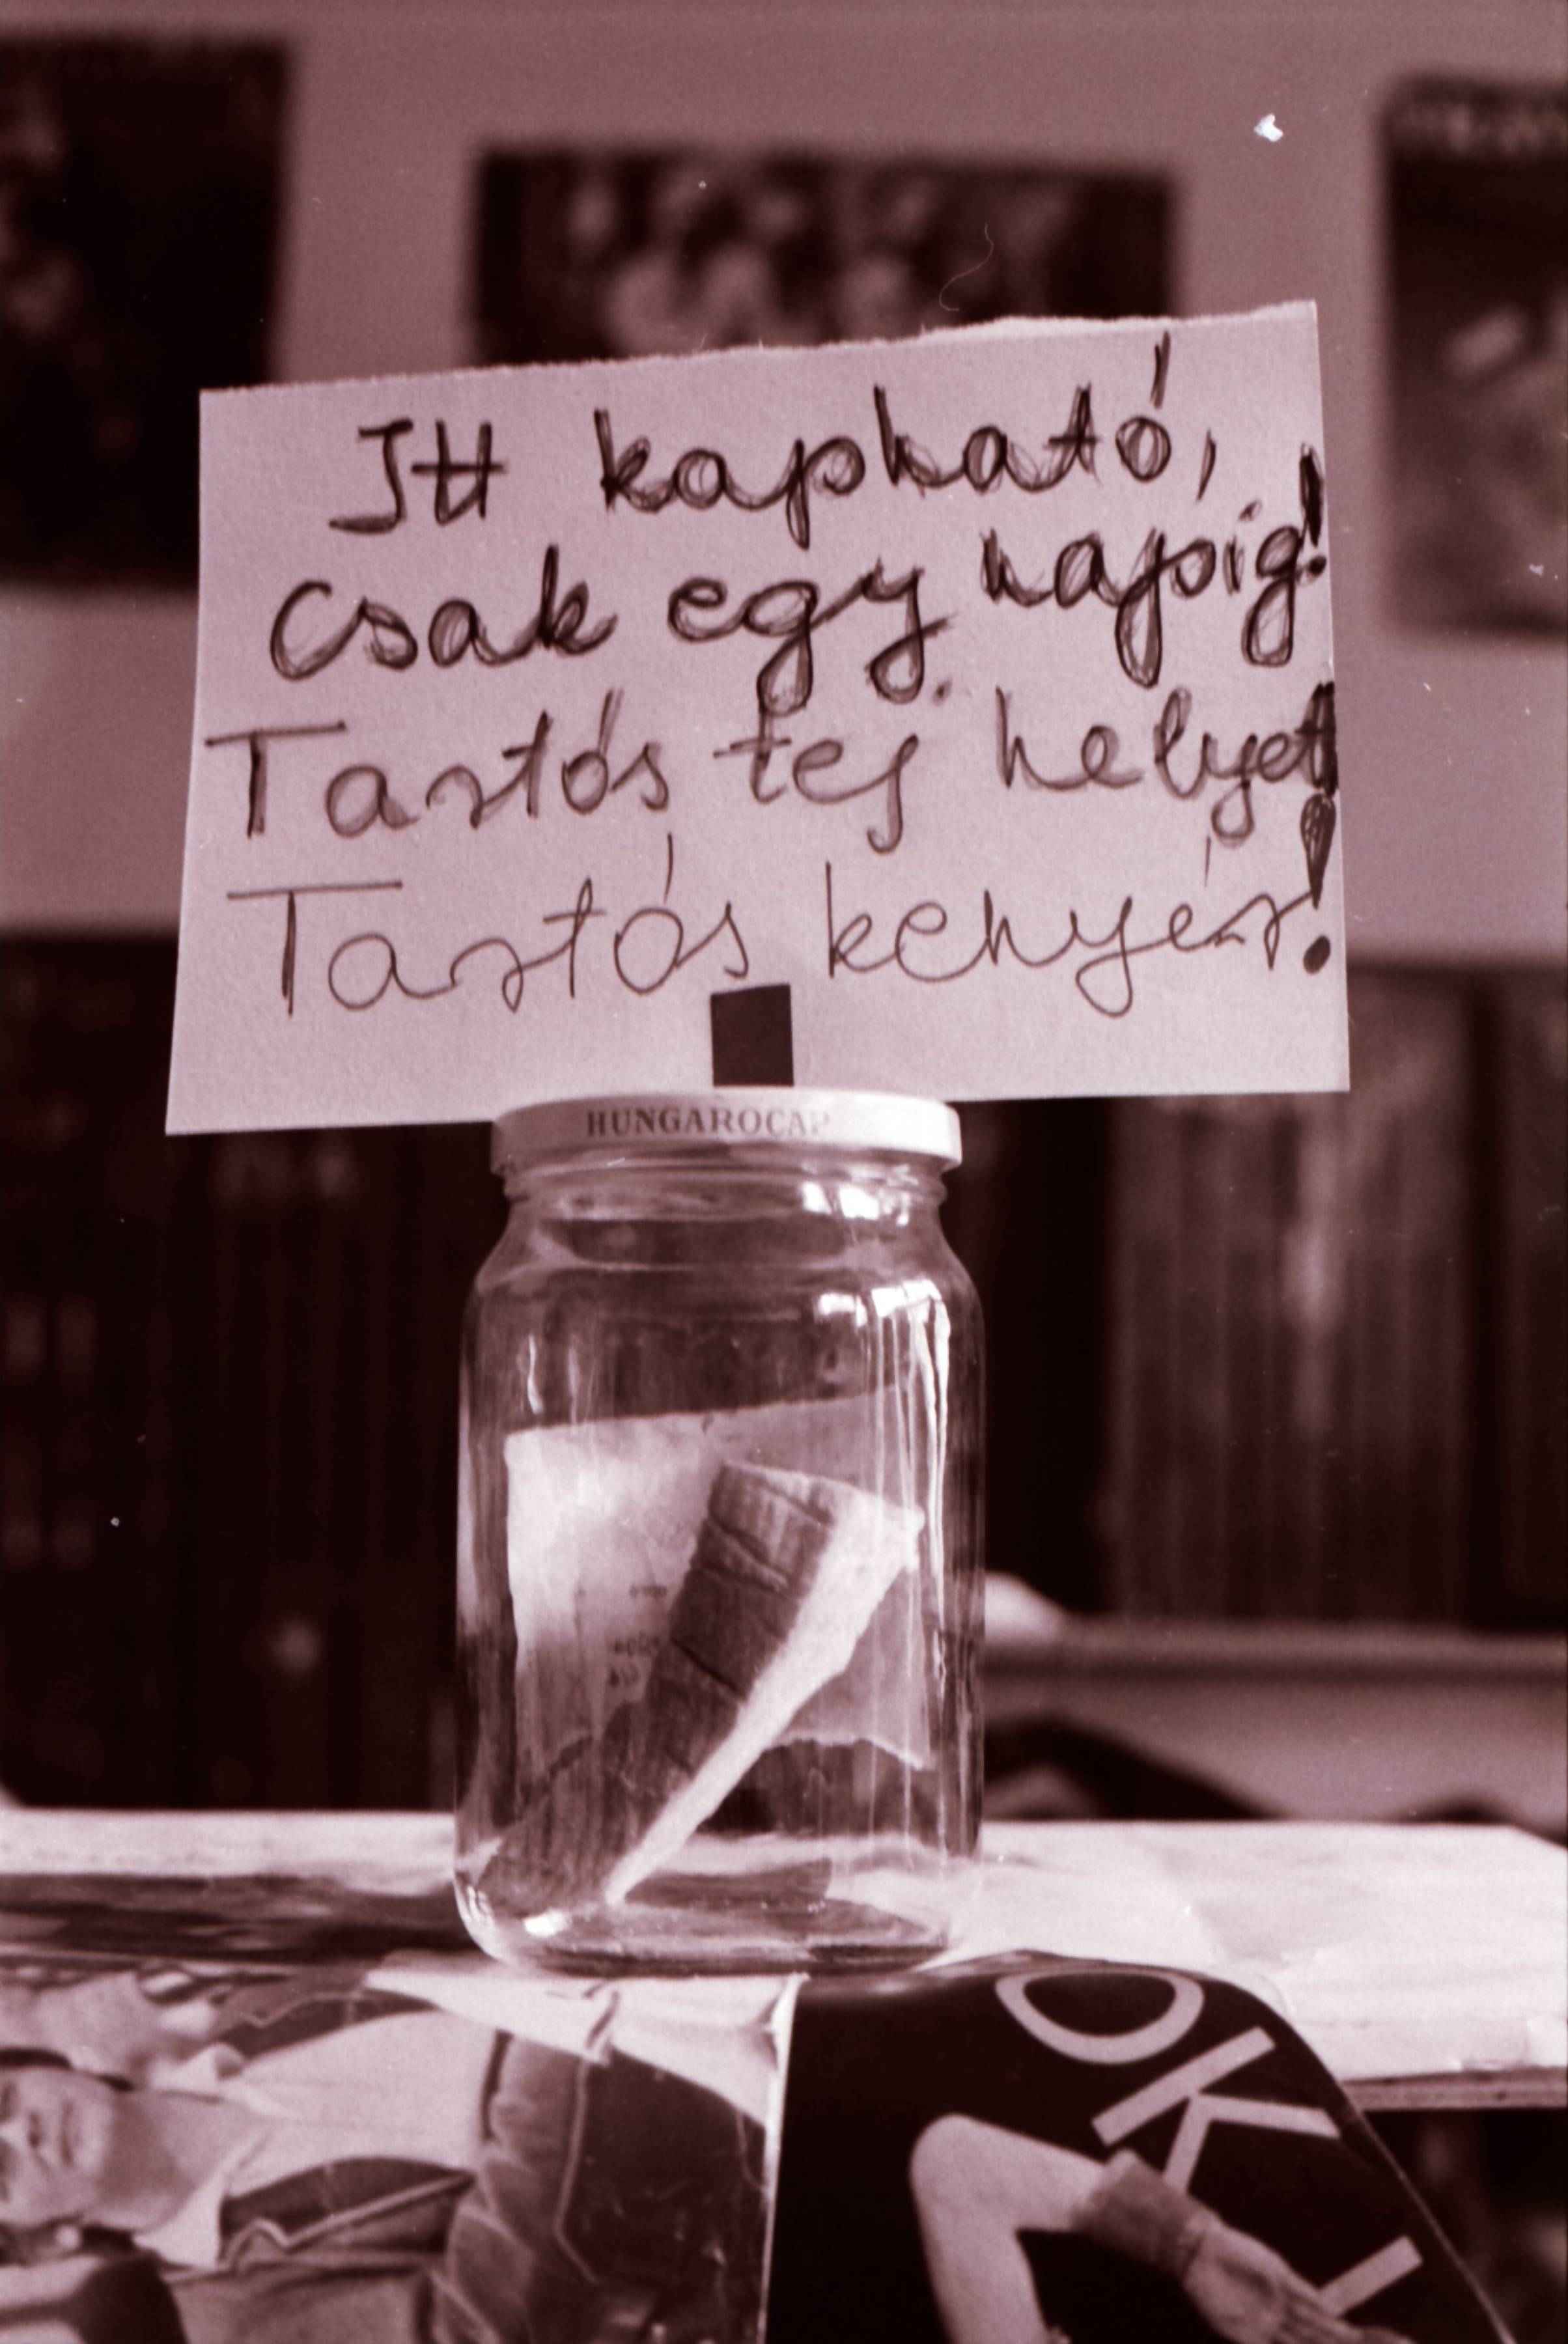 Itt kapható,
csak egy napig!
Tartós tej helyet
Tartós kenyér!
HUNGAROCAP
OKI